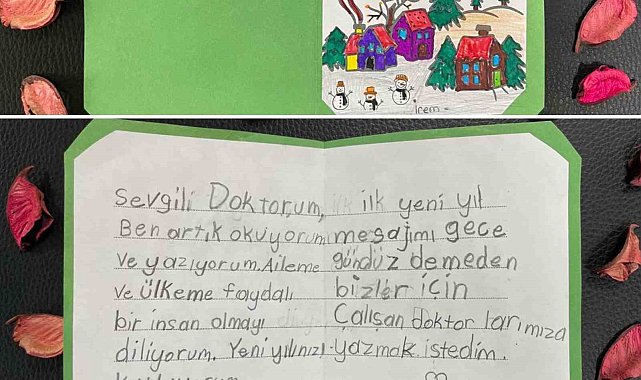 İrem
Sevgili Doktorum,
Ben artık okuyorum
ve yazıyorum. Aileme
ve ülkeme faydalı
bir insan olmayı
diliyorum. Yeni yılınızı
ilk yeni yıl
mesajımı gece
gündüz demeden
bizler için
Çalışan doktor larımıza
yazmak istedim.